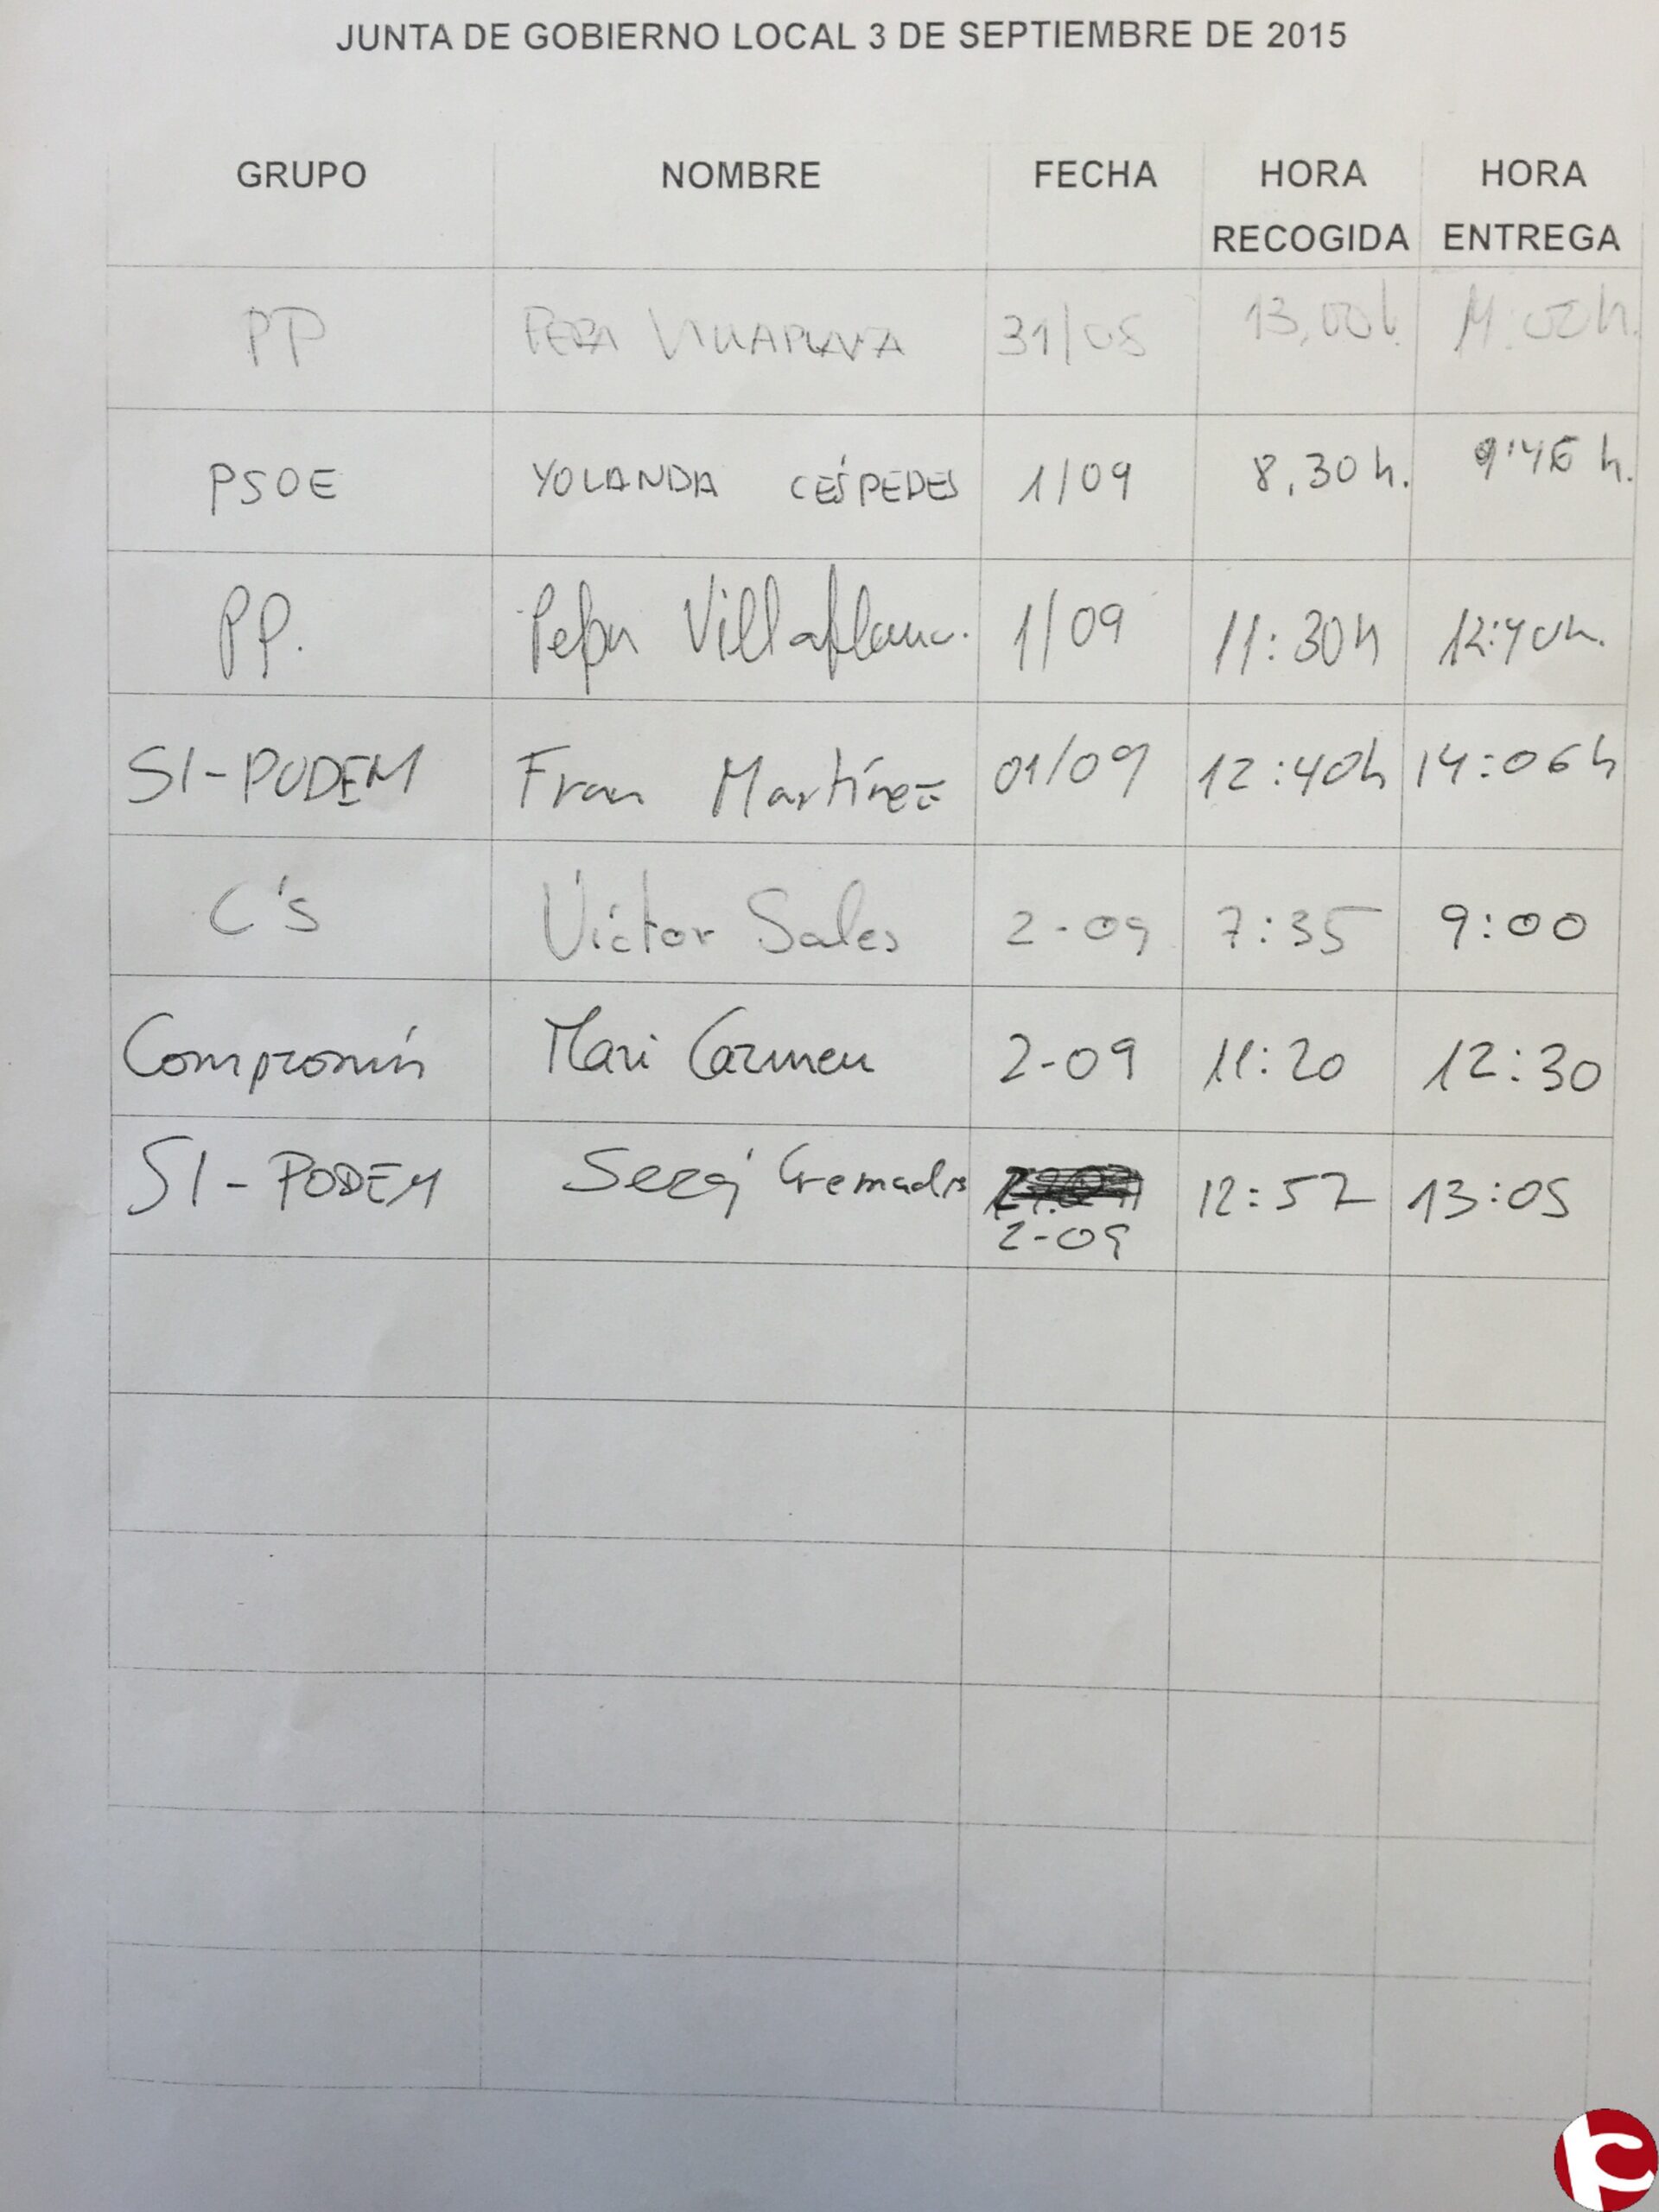 JUNTA DE GOBIERNO LOCAL 3 DE SEPTIEMBRE DE 2015
GRUPO NOMBRE FECHA HORA RECOGIDA HORA ENTREGA
PP PEPA 31/08 13,00h.
PSOE YOLANDA CÉSPEDES 1/09 8,30 h. 9'46 h.
PP. Pepa 1/09 11:30h 12:40h.
SI-PODEM Fran Martínez 01/09 12:40h 14:06h
C's Víctor Sales 2-09 7:35 9:00
Compromís Mari Carmen 2-09 11:20 12:30
SI-PODEM Sergi Cremades 2-09 12:57 13:05